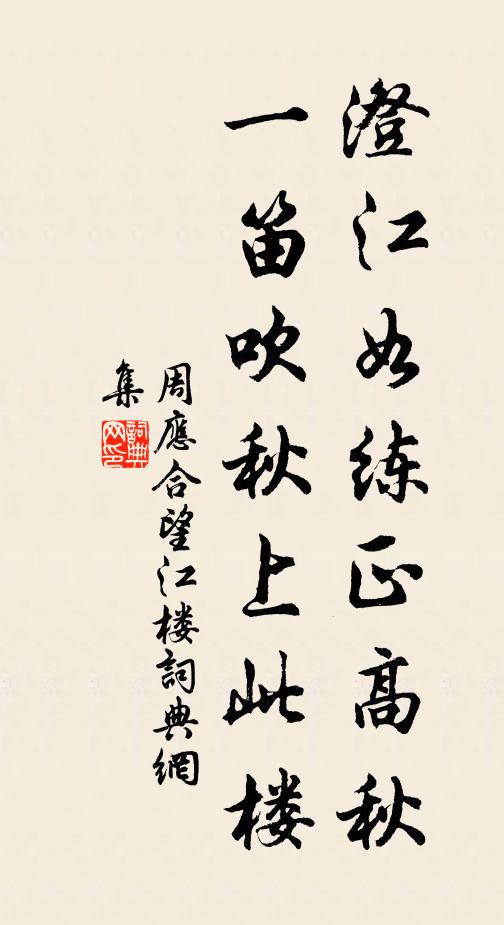 澄江如练正高秋
一笛吹秋上此楼
周應合望江楼詞典網
集
詞典
网印